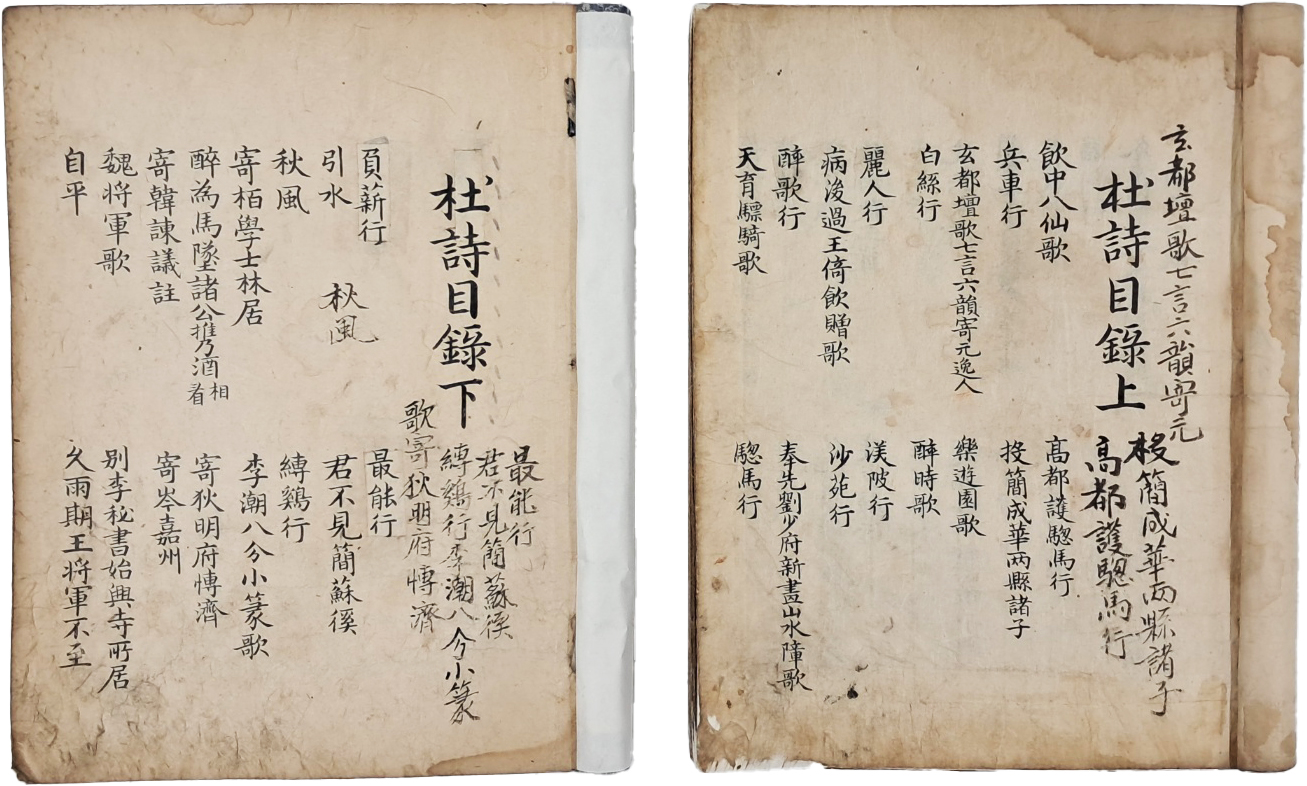 玄都壇歌七言六韻寄元
投簡成華兩縣諸子
杜詩目錄上
高都護驄馬行
飲中八仙歌
高都護驄馬行
兵車行
投簡成華兩縣諸子
玄都壇歌七言六韻寄元逸人
樂遊園歌
白絲行
醉時歌
麗人行
渼陂行
病後過王倚飲贈歌
沙苑行
醉歌行
奉先劉少府新畫山水障歌
天育驃騎歌
驄馬行
最能行
君不見簡蘇徯
杜詩目錄下
縛鷄行李潮八分小篆
歌寄狄明府愽濟
負薪行
最能行
引水
秋風
君不見簡蘇徯
秋風
縛鷄行
寄栢學士林居
李潮八分小篆歌
醉為馬墜諸公携乃酒相看
寄狄明府愽濟
寄韓諫議註
寄岑嘉州
魏將軍歌
別李秘書始興寺所居
自平
久雨期王將軍不至